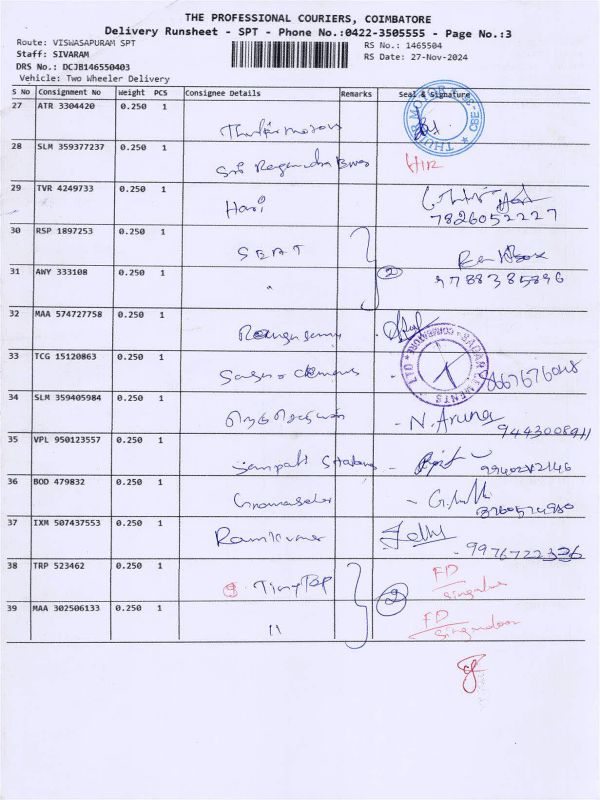 THE PROFESSIONAL COURIERS, COIMBATORE
Delivery Runsheet - SPT - Phone No.:0422-3505555 - Page No.:3
Route: VISWASAPURAM SPT
RS No.: 1465504
Staff: SIVARAM
RS Date: 27-Nov-2024
DRS No.: DCJB146550403
Vehicle: Two Wheeler Delivery
S No Consignment No Weight PCS Consignee Details Remarks Seal & Signature
27 ATR 3304420 0.250 1
THUDIR MOTOR CBE-35
28 SLM 359377237 0.250 1
29 TVR 4249733 0.250 1 Hari
7826052227
30 RSP 1897253 0.250 1 SEAT
31 AWY 333108 0.250 1 " 2 9788385896
32 MAA 574727758 0.250 1
33 TCG 15120863 0.250 1
SAGAR CEMENTS LTD COIMBATORE
34 SLM 359405984 0.250 1 - N. Aruna
9443008911
35 VPL 950123557 0.250 1
36 BOD 479832 0.250 1
37 IXM 507437553 0.250 1 Ramkumar
- 9976722336
38 TRP 523462 0.250 1 Tiny Top 2 FD
39 MAA 302506133 0.250 1 11 FD